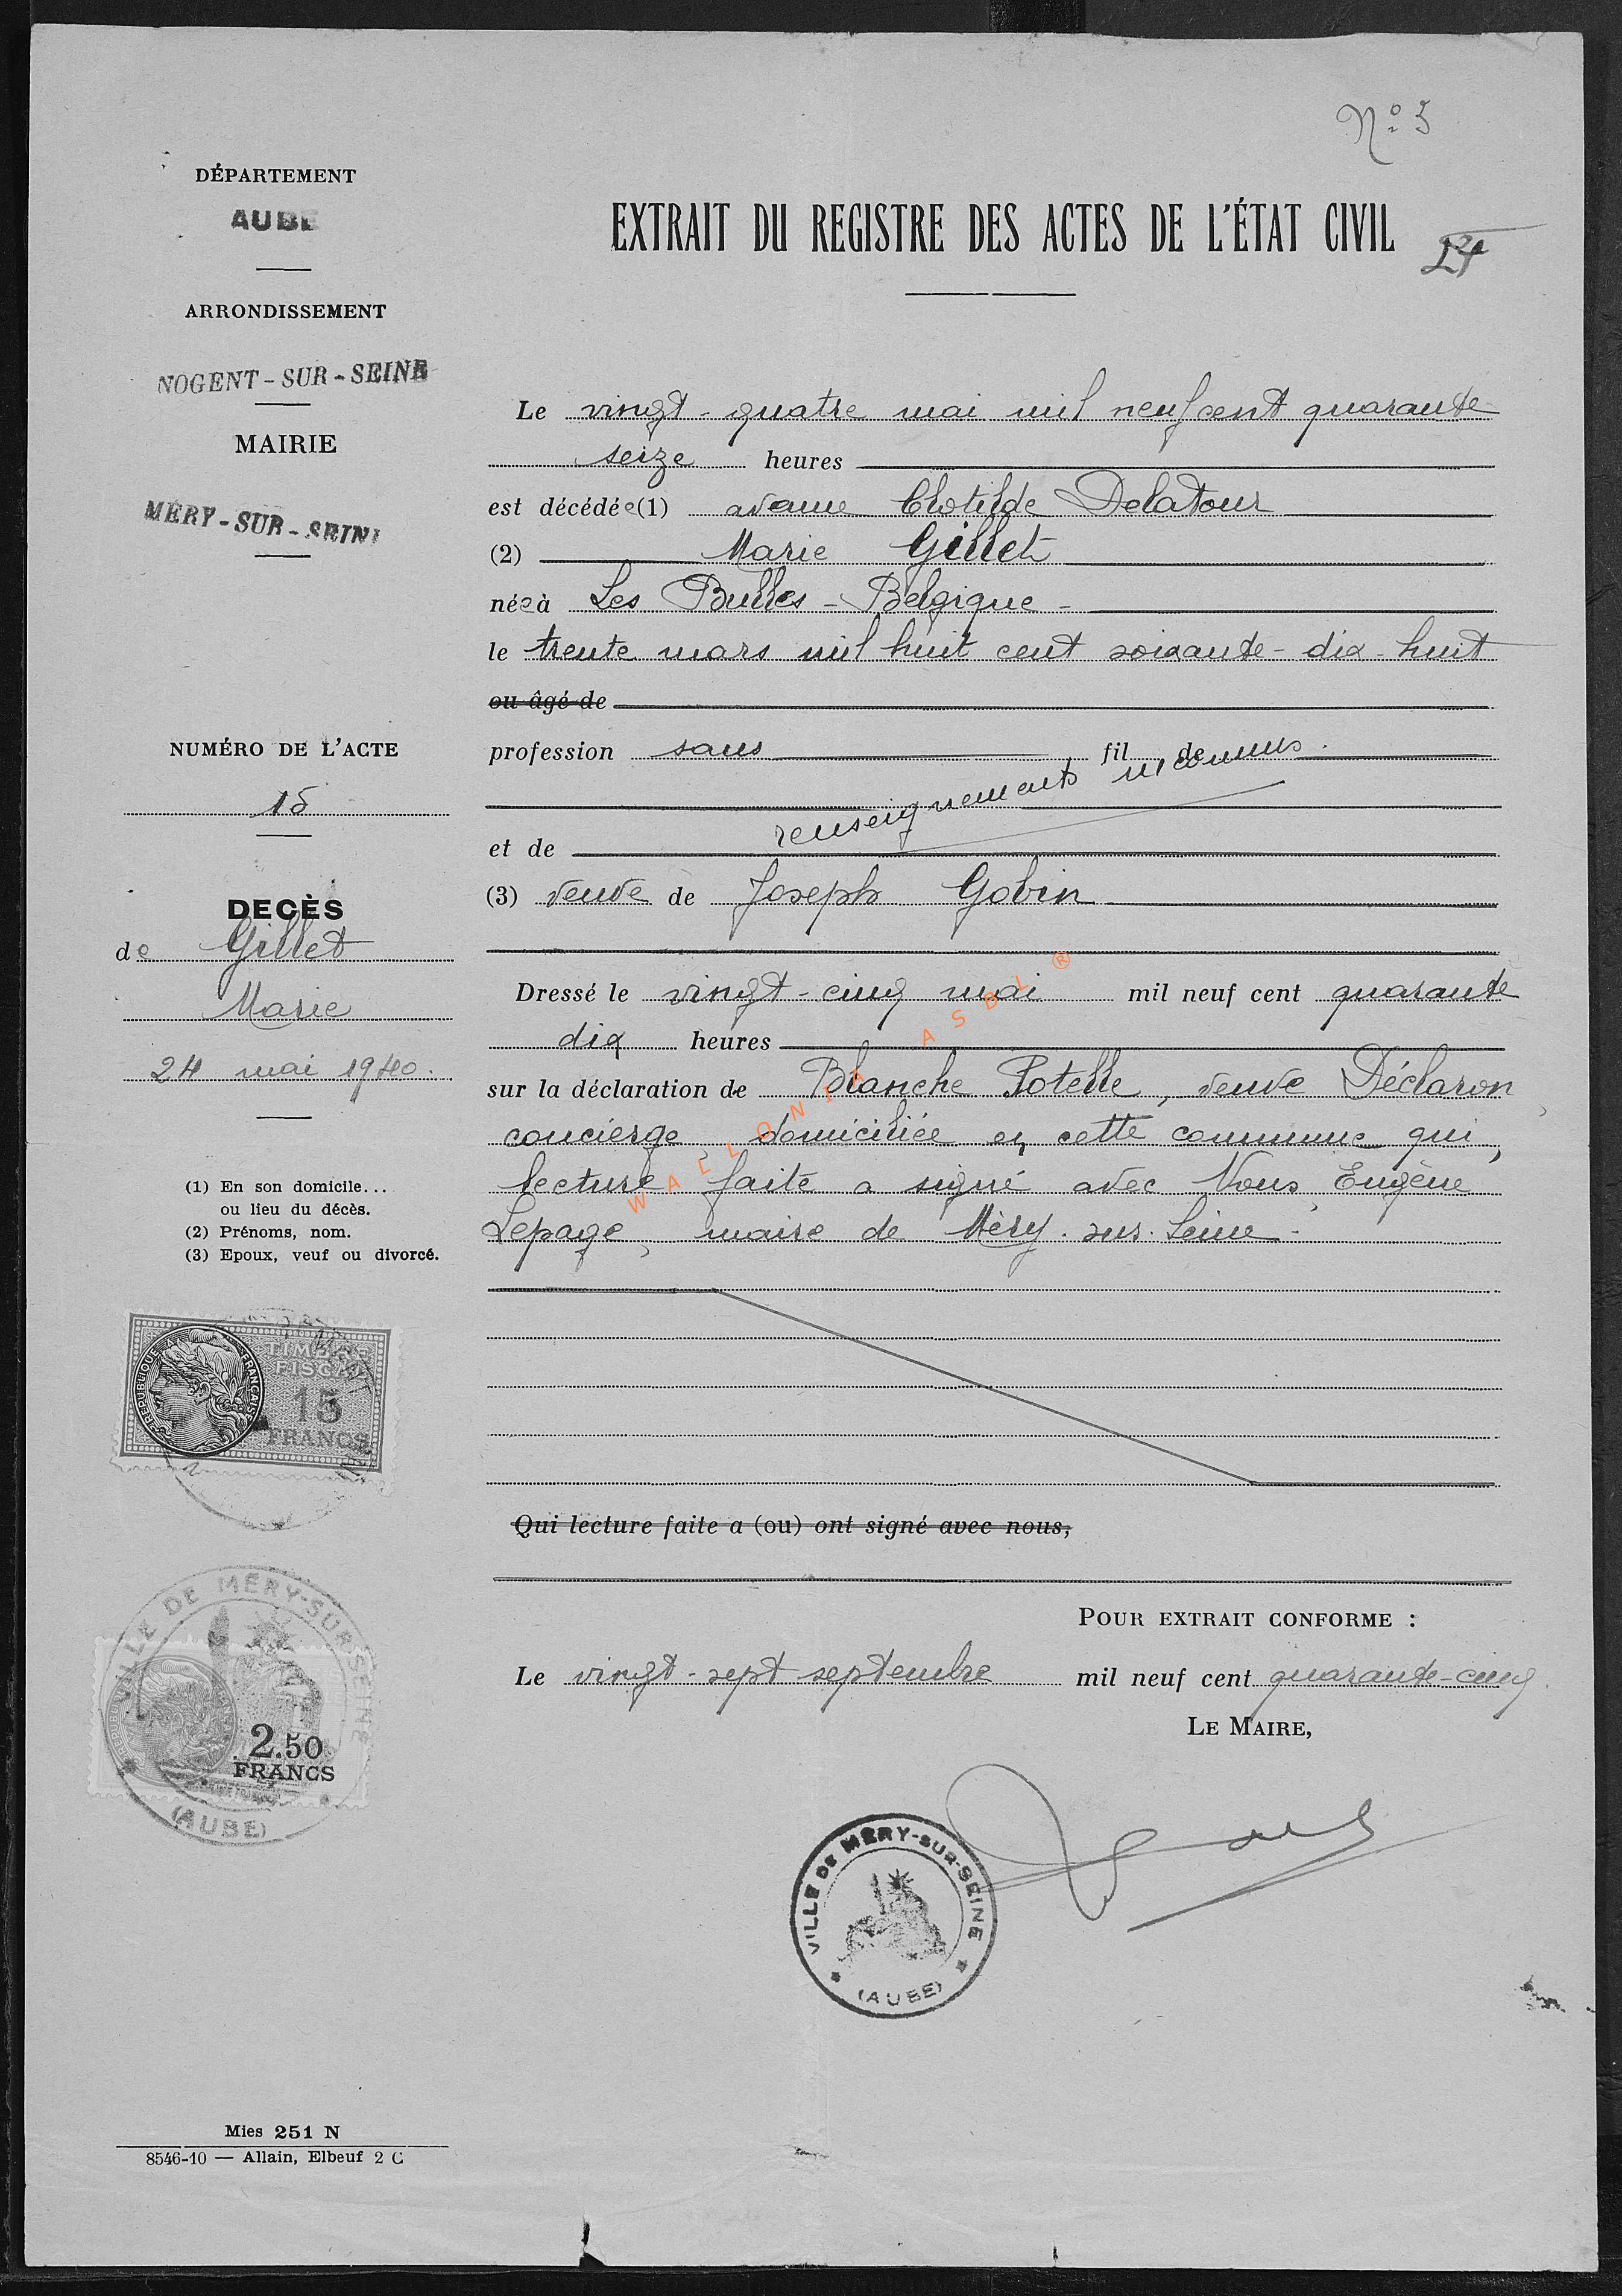 Nº 5
DÉPARTEMENT
AUBE
ARRONDISSEMENT
NOGENT-SUR-SEINE
MAIRIE
MÉRY-SUR-SEINE
NUMÉRO DE L'ACTE
15
DECÈS
de Gillet
Marie
24 mai 1940.
(1) En son domicile...
ou lieu du décès.
(2) Prénoms, nom.
(3) Epoux, veuf ou divorcé.
RÉPUBLIQUE FRANÇAISE
TIMBRE
FISCAL
15
FRANCS
VILLE DE MÉRY-SUR-SEINE
2.50
FRANCS
(AUBE)
Mies 251 N
8546-10 — Allain, Elbeuf 2 C
EXTRAIT DU REGISTRE DES ACTES DE L'ÉTAT CIVIL
Le vingt-quatre mai mil neuf cent quarante
seize heures
est décédée (1) avenue Clotilde Delatour
(2) Marie Gillet
née à Les Bulles - Belgique -
le trente mars mil huit cent soixante-dix-huit
ou âgé de
profession sans fil de
renseignements inconnus.
et de
(3) veuve de Joseph Gobin
Dressé le vingt-cinq mai mil neuf cent quarante
dix heures
sur la déclaration de Blanche Potelle, veuve Déclaron
concierge, domiciliée en cette commune qui,
lecture faite a signé avec Nous, Eugène
Lepage, maire de Méry-sur-Seine.
WALLONIA ASBL ®
Qui lecture faite a (ou) ont signé avec nous,
POUR EXTRAIT CONFORME :
Le vingt-sept septembre mil neuf cent quarante-cinq
LE MAIRE,
VILLE DE MÉRY-SUR-SEINE
(AUBE)